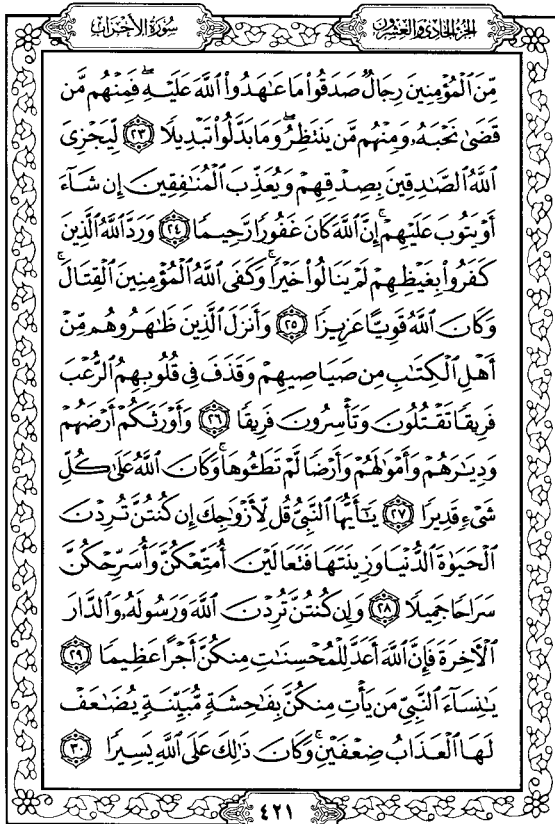 سُورَةُ الأَحْزَابِ
الجُزْءُ الحَادِي وَالعِشْرُونَ
مِّنَ ٱلْمُؤْمِنِينَ رِجَالٌ صَدَقُوا۟ مَا عَـٰهَدُوا۟ ٱللَّهَ عَلَيْهِ ۖ فَمِنْهُم مَّن
قَضَىٰ نَحْبَهُۥ وَمِنْهُم مَّن يَنتَظِرُ ۖ وَمَا بَدَّلُوا۟ تَبْدِيلًا ﴿٢٣﴾ لِّيَجْزِىَ
ٱللَّهُ ٱلصَّـٰدِقِينَ بِصِدْقِهِمْ وَيُعَذِّبَ ٱلْمُنَـٰفِقِينَ إِن شَآءَ
أَوْ يَتُوبَ عَلَيْهِمْ ۚ إِنَّ ٱللَّهَ كَانَ غَفُورًا رَّحِيمًا ﴿٢٤﴾ وَرَدَّ ٱللَّهُ ٱلَّذِينَ
كَفَرُوا۟ بِغَيْظِهِمْ لَمْ يَنَالُوا۟ خَيْرًا ۚ وَكَفَى ٱللَّهُ ٱلْمُؤْمِنِينَ ٱلْقِتَالَ ۚ
وَكَانَ ٱللَّهُ قَوِيًّا عَزِيزًا ﴿٢٥﴾ وَأَنزَلَ ٱلَّذِينَ ظَـٰهَرُوهُم مِّنْ
أَهْلِ ٱلْكِتَـٰبِ مِن صَيَاصِيهِمْ وَقَذَفَ فِى قُلُوبِهِمُ ٱلرُّعْبَ
فَرِيقًا تَقْتُلُونَ وَتَأْسِرُونَ فَرِيقًا ﴿٢٦﴾ وَأَوْرَثَكُمْ أَرْضَهُمْ
وَدِيَـٰرَهُمْ وَأَمْوَٰلَهُمْ وَأَرْضًا لَّمْ تَطَـُٔوهَا ۚ وَكَانَ ٱللَّهُ عَلَىٰ كُلِّ
شَىْءٍ قَدِيرًا ﴿٢٧﴾ يَـٰٓأَيُّهَا ٱلنَّبِىُّ قُل لِّأَزْوَٰجِكَ إِن كُنتُنَّ تُرِدْنَ
ٱلْحَيَوٰةَ ٱلدُّنْيَا وَزِينَتَهَا فَتَعَالَيْنَ أُمَتِّعْكُنَّ وَأُسَرِّحْكُنَّ
سَرَاحًا جَمِيلًا ﴿٢٨﴾ وَإِن كُنتُنَّ تُرِدْنَ ٱللَّهَ وَرَسُولَهُۥ وَٱلدَّارَ
ٱلْـَٔاخِرَةَ فَإِنَّ ٱللَّهَ أَعَدَّ لِلْمُحْسِنَـٰتِ مِنكُنَّ أَجْرًا عَظِيمًا ﴿٢٩﴾
يَـٰنِسَآءَ ٱلنَّبِىِّ مَن يَأْتِ مِنكُنَّ بِفَـٰحِشَةٍ مُّبَيِّنَةٍ يُضَـٰعَفْ
لَهَا ٱلْعَذَابُ ضِعْفَيْنِ ۚ وَكَانَ ذَٰلِكَ عَلَى ٱللَّهِ يَسِيرًا ﴿٣٠﴾
٤٢١